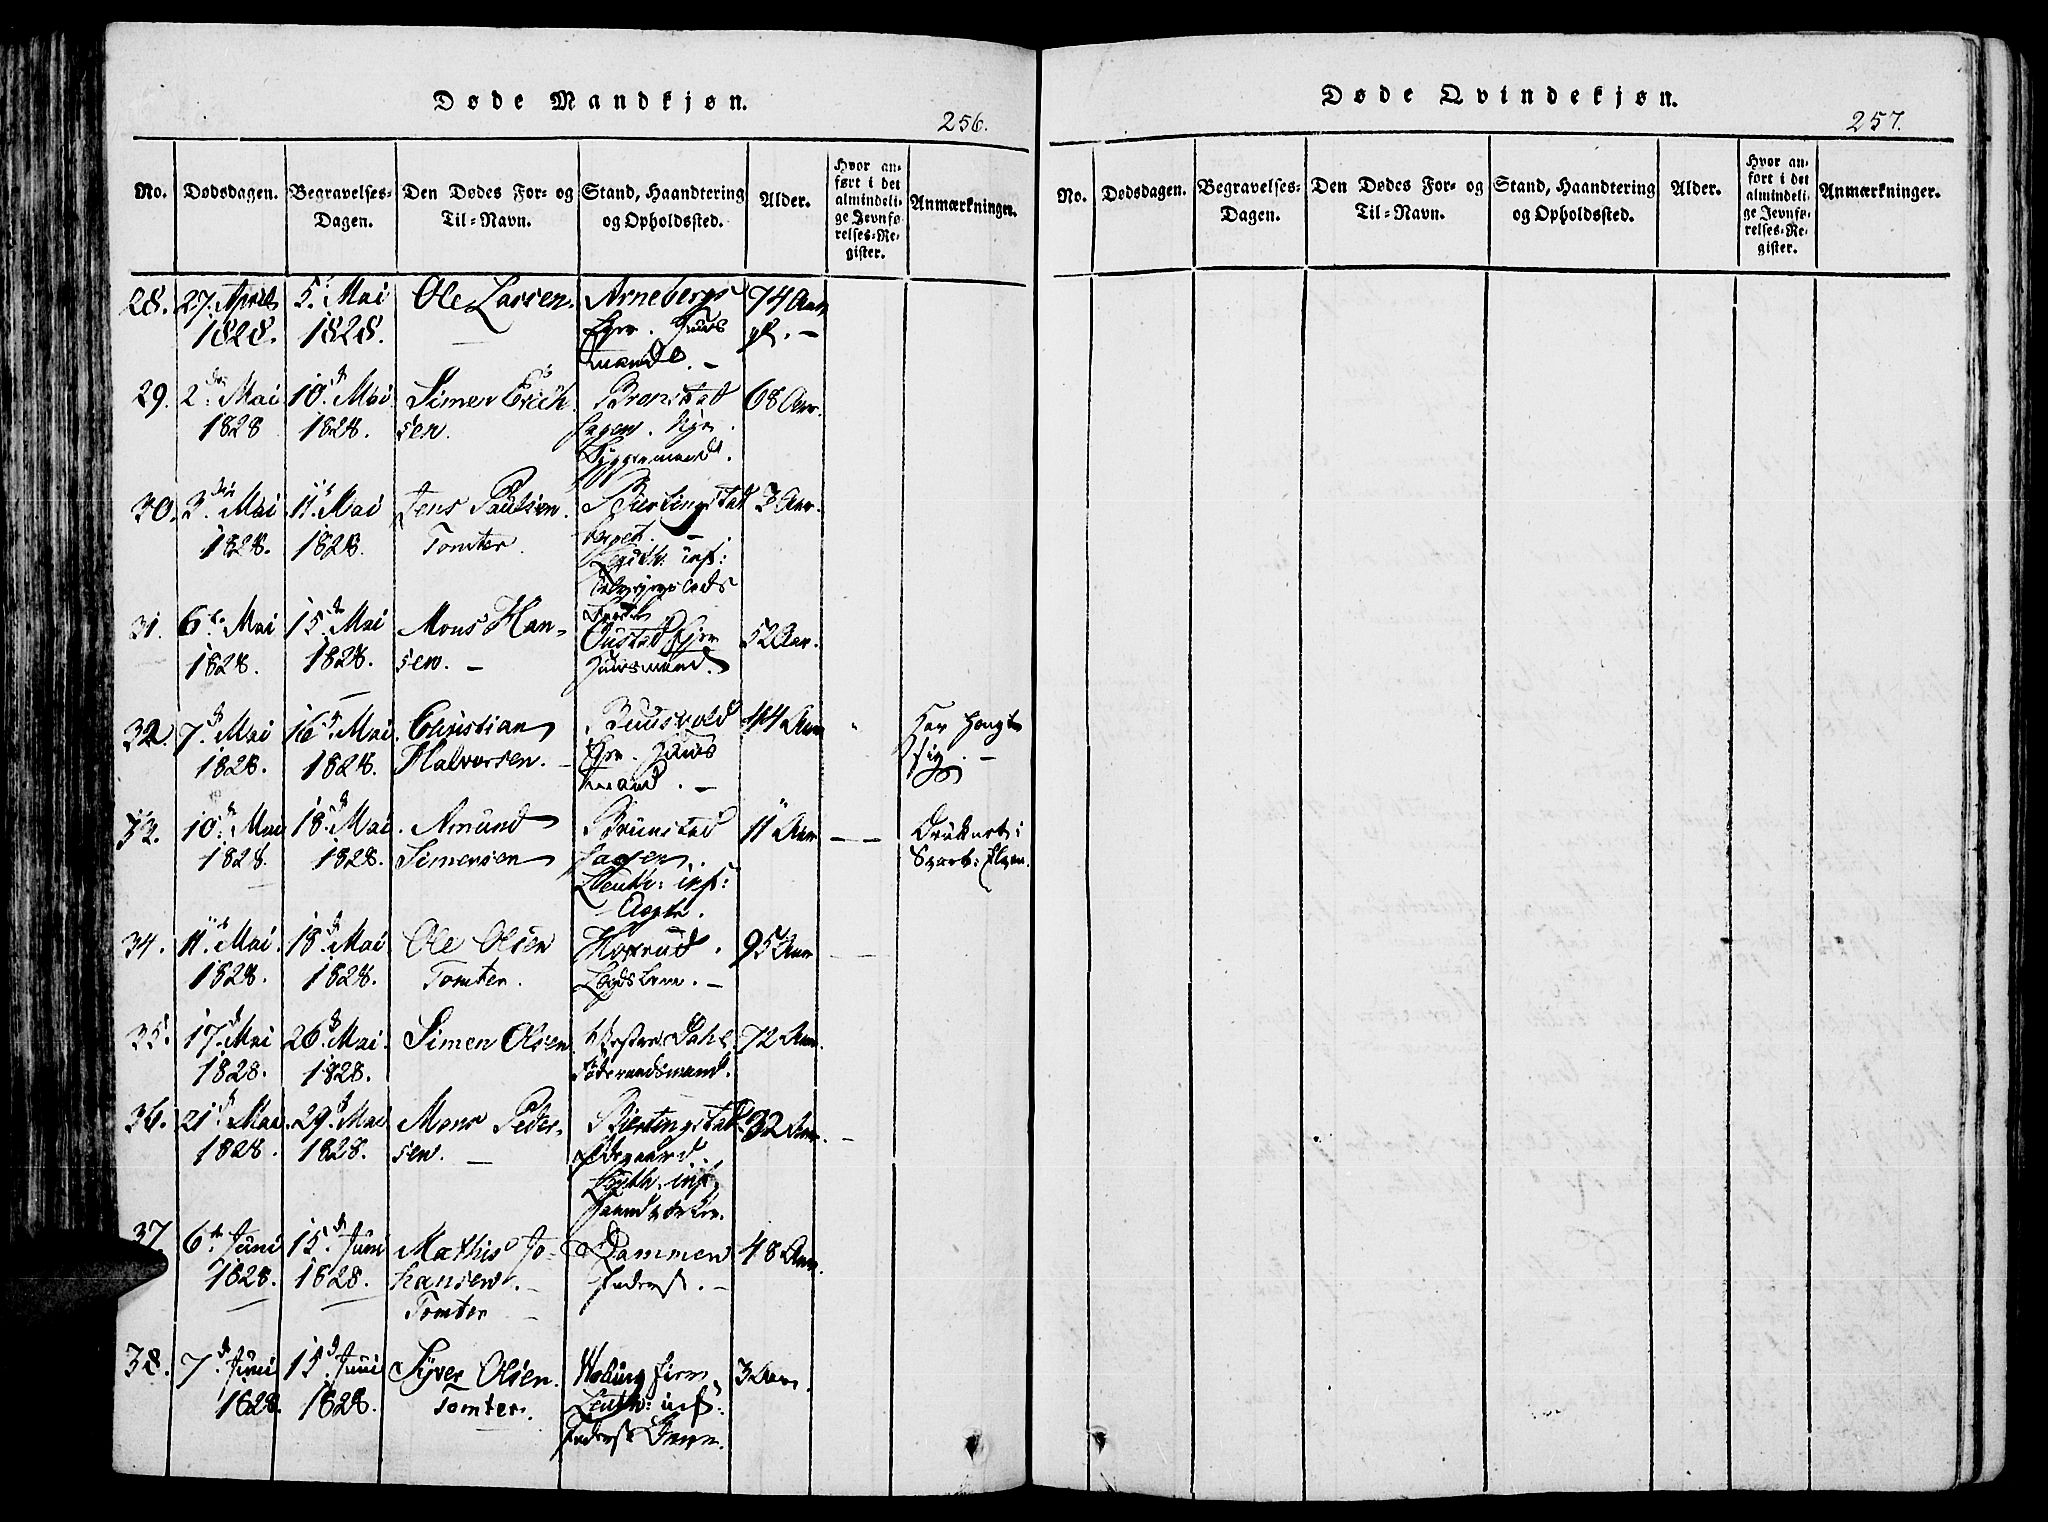 Døde Mandkjøn.
256.
No.
Dødsdagen.
Begravelses-
Dagen.
Den Dødes For- og
Til-Navn.
Stand, Haandtering
og Opholdssted.
Alder.
Hvor an-
ført i det
almindeli-
ge Jevnfø-
relses-Re-
gister.
Anmærkninger.
28.
27. April
1828.
5. Mai
1828.
Ole Larsen.
Arnebergs
Eyer. Huus
mand.
74 Aar
gl.
29.
2den Mai
1828
10de Mai
1828.
Simen Erich
sen.
Bronstad
hagen.
68 Aar.
30.
3die Mai
1828.
11te Mai
1828.
Jens Paulsen.
Tomter.
Bierlingstad
inf:
3 Aar.
31.
6te Mai
1828.
15de Mai
1828.
Mons Han-
sen.
Oustad Eyer
Huusmand.
52 Aar.
32.
7de Mai
1828.
16de Mai.
1828.
Christian
Halvorsen.
Buusvold
Eyer. Huus
mand.
44 Aar
Har hengt
sig.
33.
10de Mai
1828.
18de Mai.
1828.
Amund
Simensen
Brunstad
hagen.
inf:
11 Aar
Druknet i
Svart: Elven.
34.
11te Mai.
1828.
18de Mai
1828.
Ole Olsen
Tomter.
Moxrud.
Lægdslem.
95 Aar
35.
17de Mai
1828.
26de Mai.
1828.
Simen Olsen
Vestre Dahl.
Føderaadsmand.
72 Aar.
36.
21de Mai.
1828.
29de Mai
1828.
Mons Peder-
sen.
Bierlingstad
Ødegaard.
inf
32 Aar.
37.
6te Juni
1828.
15de Juni
1828.
Mathis Jo-
hansen.
Tomter
Dammen
Inderst.
48 Aar.
38.
7de Juni
1828.
15de Juni
1828.
Syver Olsen.
Tomter.
inf:
Inderst
3 Aar.
Døde Qvindekjøn.
257.
No.
Dødsdagen.
Begravelses-
Dagen.
Den Dødes For- og
Til-Navn.
Stand, Haandtering
og Opholdssted.
Alder.
Hvor an-
ført i det
almindeli-
ge Jevnfø-
relses-Re-
gister.
Anmærkninger.